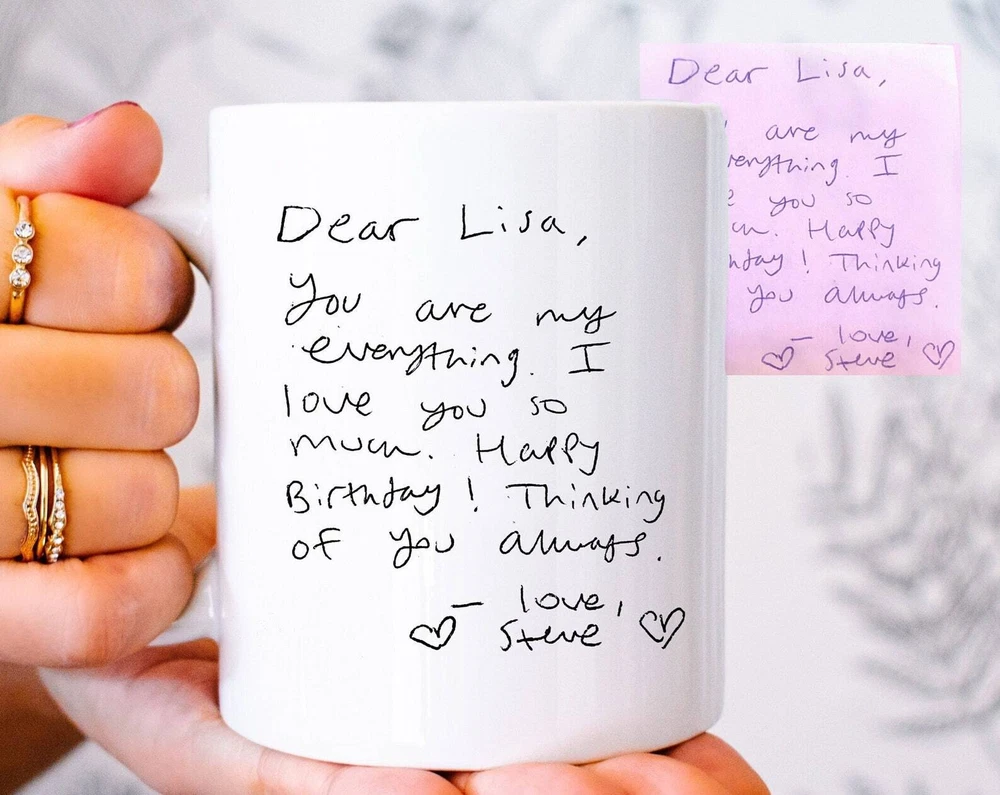 Dear Lisa,
You are my
everything. I
love you so
much. Happy
Birthday! Thinking
of you always.
– love,
Steve
Dear Lisa,
are my
I
you so
Happy
! Thinking
you always.
– love,
Steve